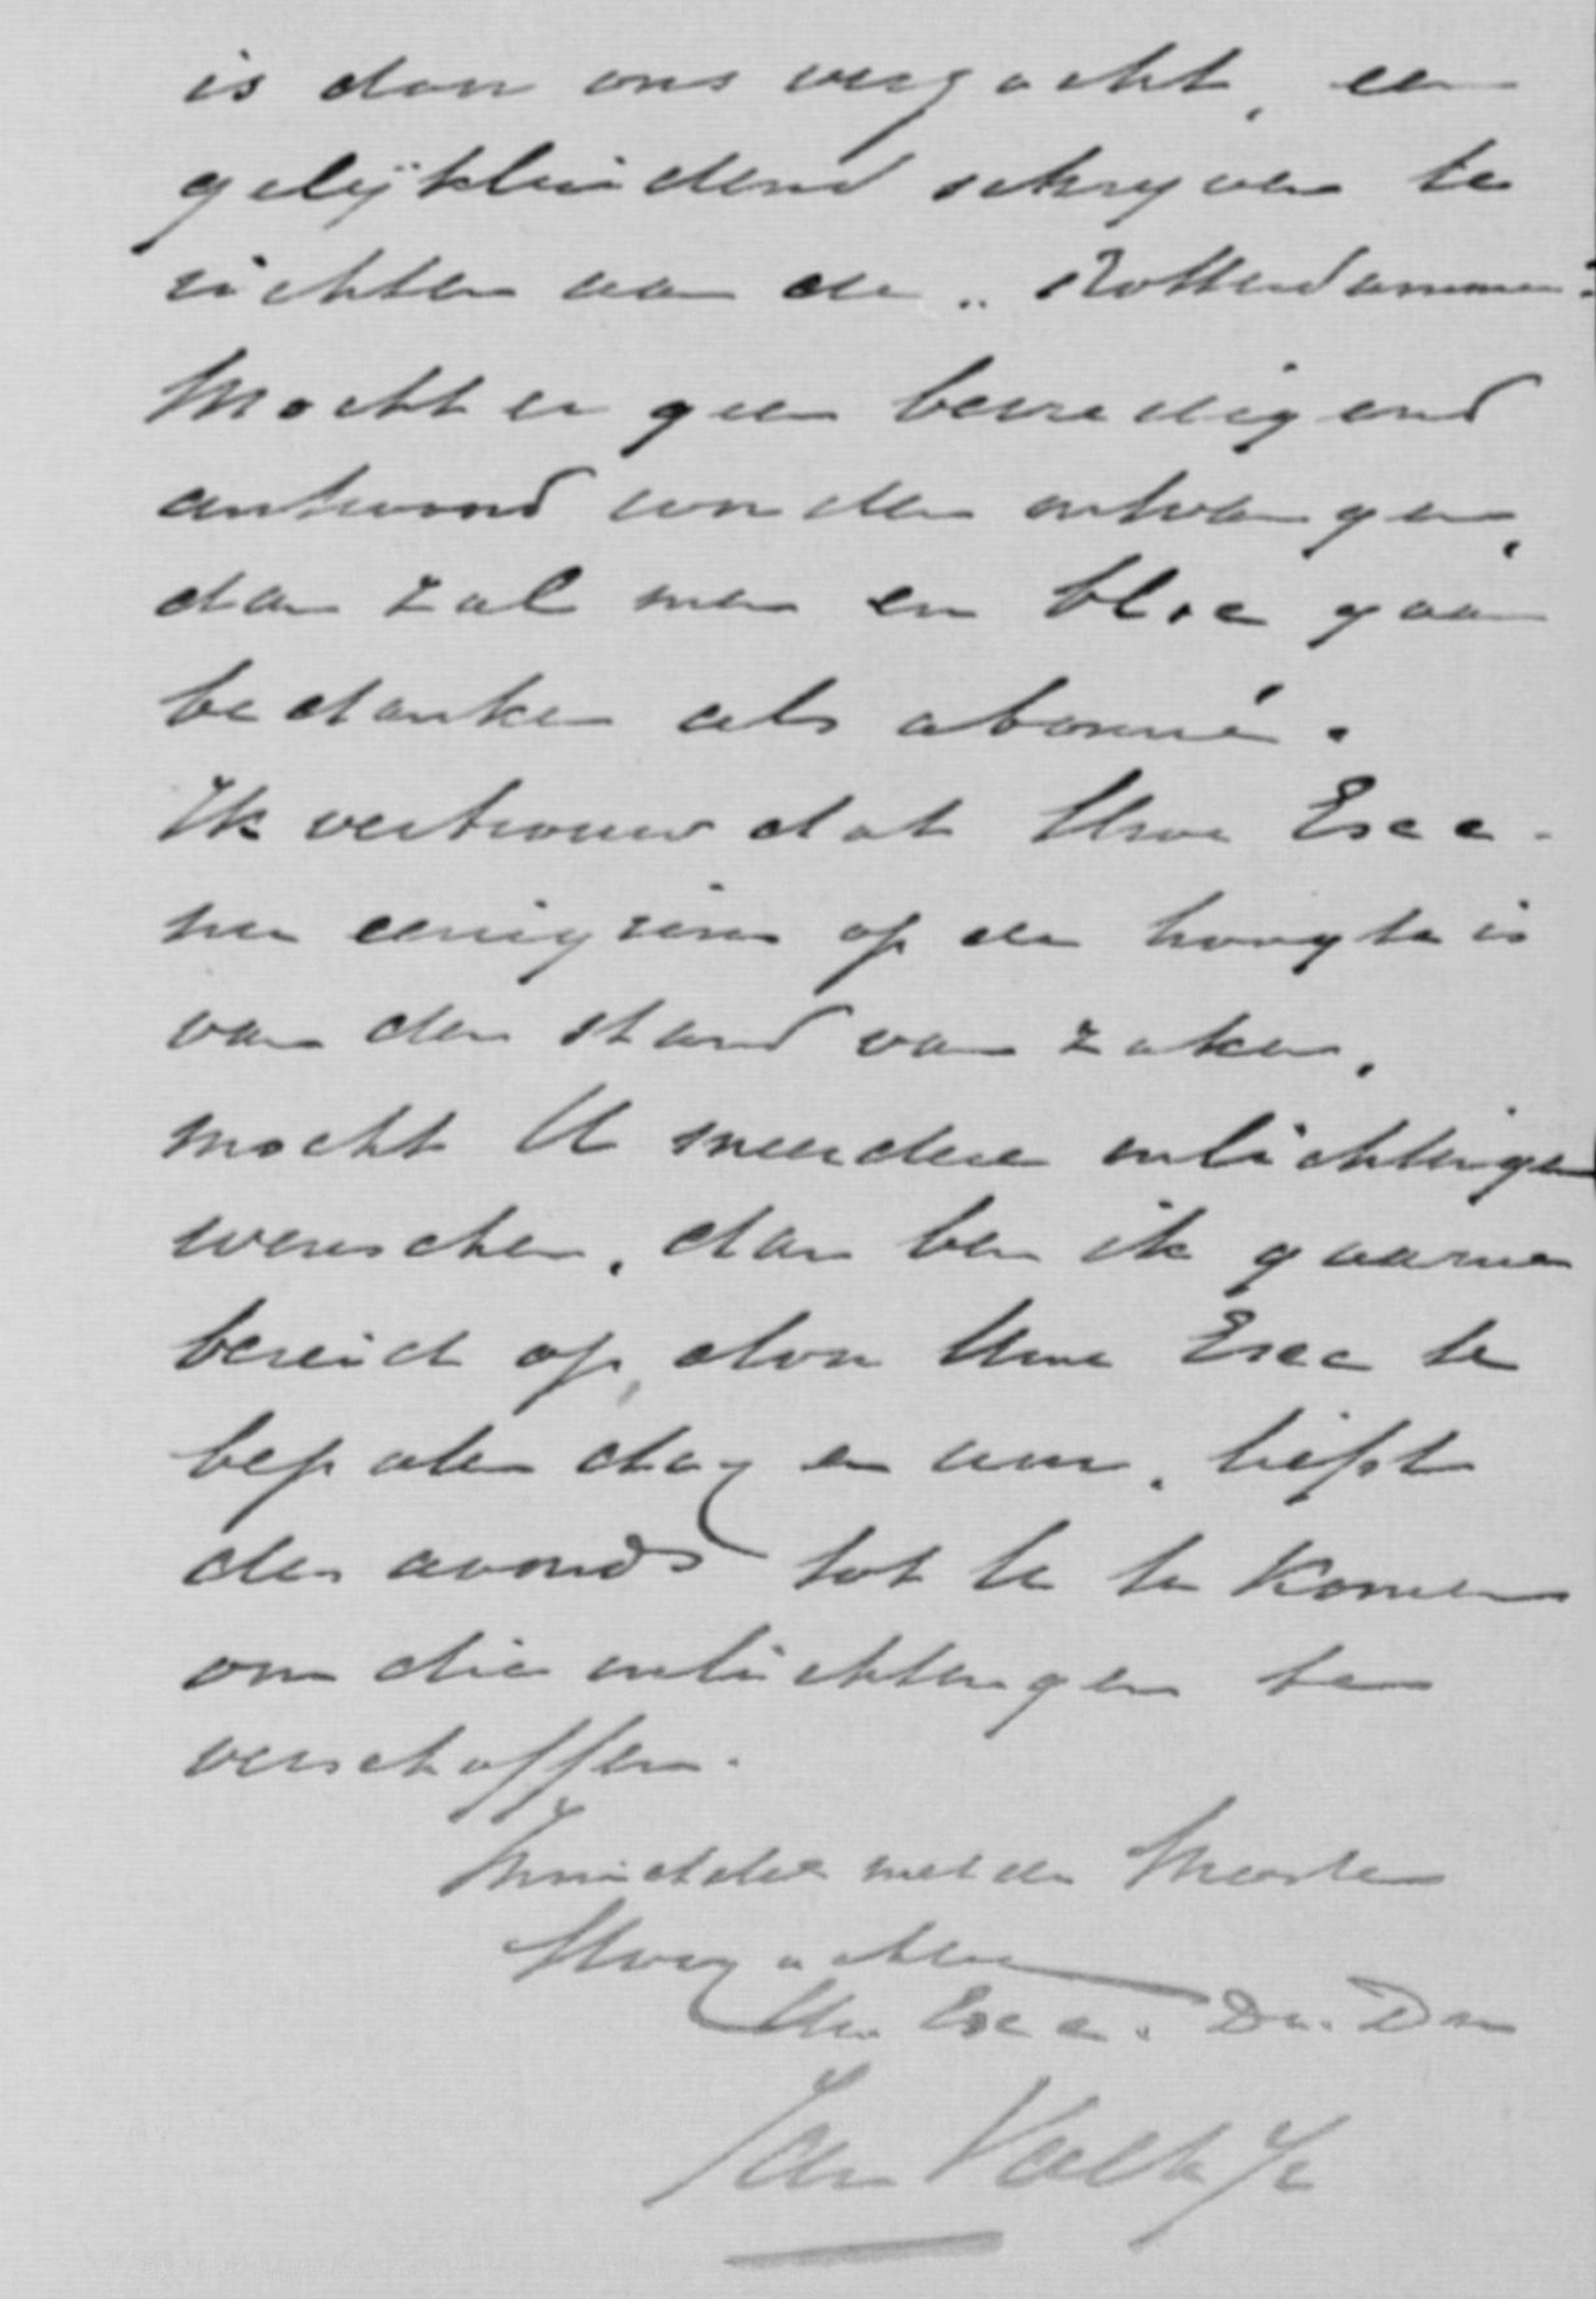 is door ons verzocht, een
gelijkluidend schrijven te
richten aan de "Rotterdammer"
Mocht er geen bevredigend
antwoord worden ontvangen,
dan zal men en bloc gaan
bedanken als abonné.
Ik vertrouw dat Uwe Exc.
nu eenigzins op de hoogte is
van den stand van zaken.
mocht U meerdere inlichtingen
wenschen, dan ben ik gaarne
bereid op, door Uwe Exc te
bepalen dag en uur, liefst
des avonds tot U te komen
om die inlichtingen te
verschaffen.
Inmiddels met de Meeste
Hoogachting
Uw Exc. Dw. Dn
Jan Valk Jr